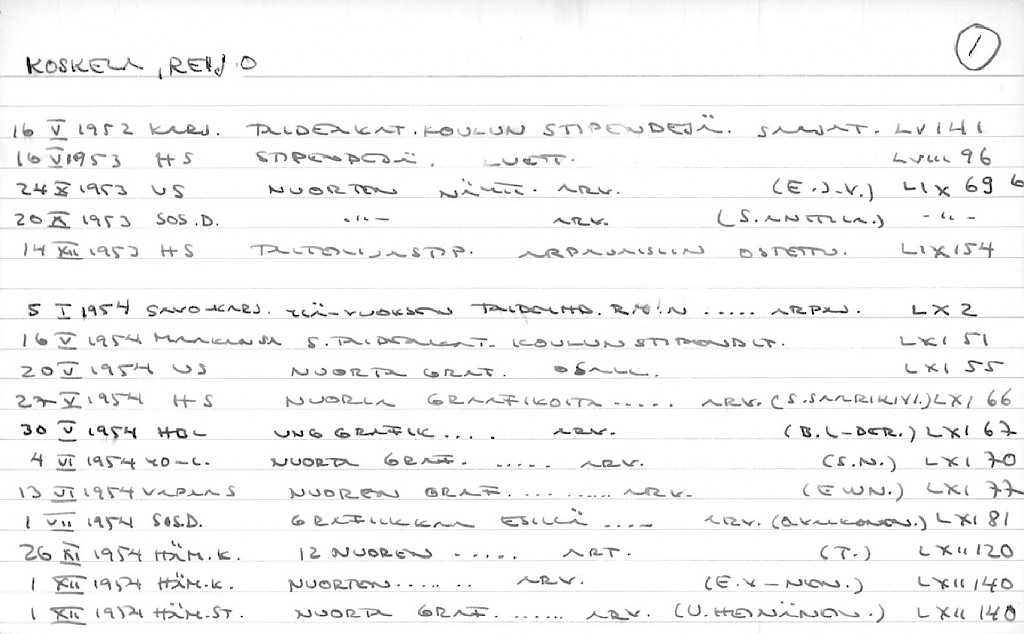 1
KOSKELA, REIJO
16 V 1952 KARJ. TAIDEAKAT. KOULUN STIPENDEJÄ. SAAJAT. LV 141
16 V 1953 HS STIPENDEJÄ. LUETT. LVIII 96
24 X 1953 US NUORTEN NÄYTT. ARV. (E.J-V.) LIX 69
20 1953 SOS.D. -"- ARV. (S. ANTTILA.) -"-
14 XII 1953 HS TAITEILIJASTIP. ARPAJAISIIN OSTETTU. LIX 154
5 I 1954 SAVO-KARJ. YLÄ-VUOKSEN TAIDEYHD. R:N ..... ARPAJ. LX 2
16 V 1954 MAAKANSA S. TAIDEAKAT. KOULUN STIPENDIT. LXI 51
20 V 1954 US NUORTA GRAF. OSALL. LXI 55
27 V 1954 HS NUORIA GRAAFIKOITA ..... ARV. (S. SAARIKIVI.) LXI 66
30 V 1954 HBL UNG GRAFIK .... ARV. (B. L-DER.) LXI 67
4 VI 1954 YO-L. NUORTA GRAF. ..... ARV. (S.N.) LXI 70
13 VI 1954 VAPAA S NUOREN GRAF. ......... ARV. (EWN.) LXI 77
1 VII 1954 SOS.D. GRAFIIKKAA ESILLÄ .... ARV. (O. VALKONEN.) LXI 81
26 XI 1954 HÄM.K. 12 NUOREN ..... ART. (T.) LXII 120
1 XII 1954 HÄM.K. NUORTEN ....... ARV. (E. V-NEN.) LXII 140
1 XII 1954 HÄM.ST. NUORTA GRAF. ...... ARV. (U. HEINÄNEN.) LXII 140